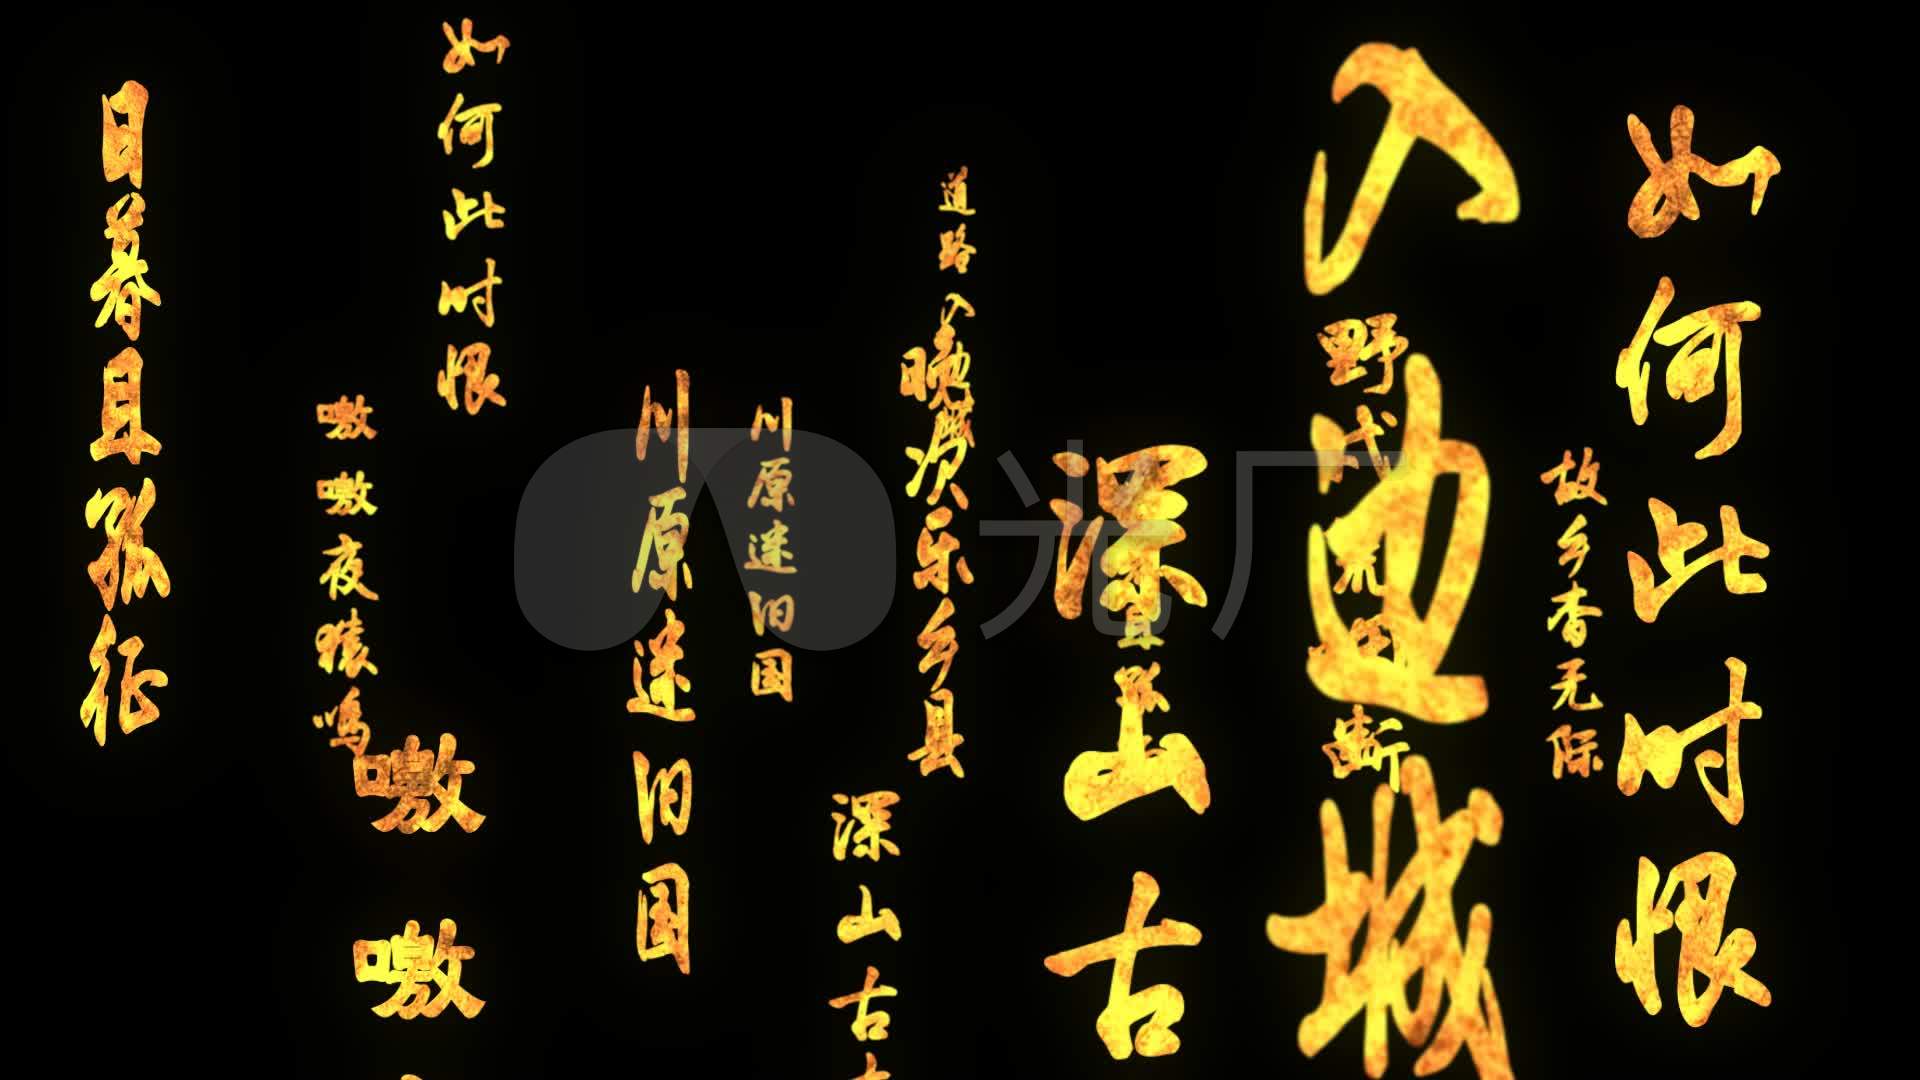 如何此时恨
故乡杳无际
入边城
野戍荒烟断
深山古
且孤
道路入
晚次乐乡县
深山古
川原迷旧国
川原迷旧国
如何此时恨
噭噭
噭噭夜猿鸣
日暮且孤征
光厂